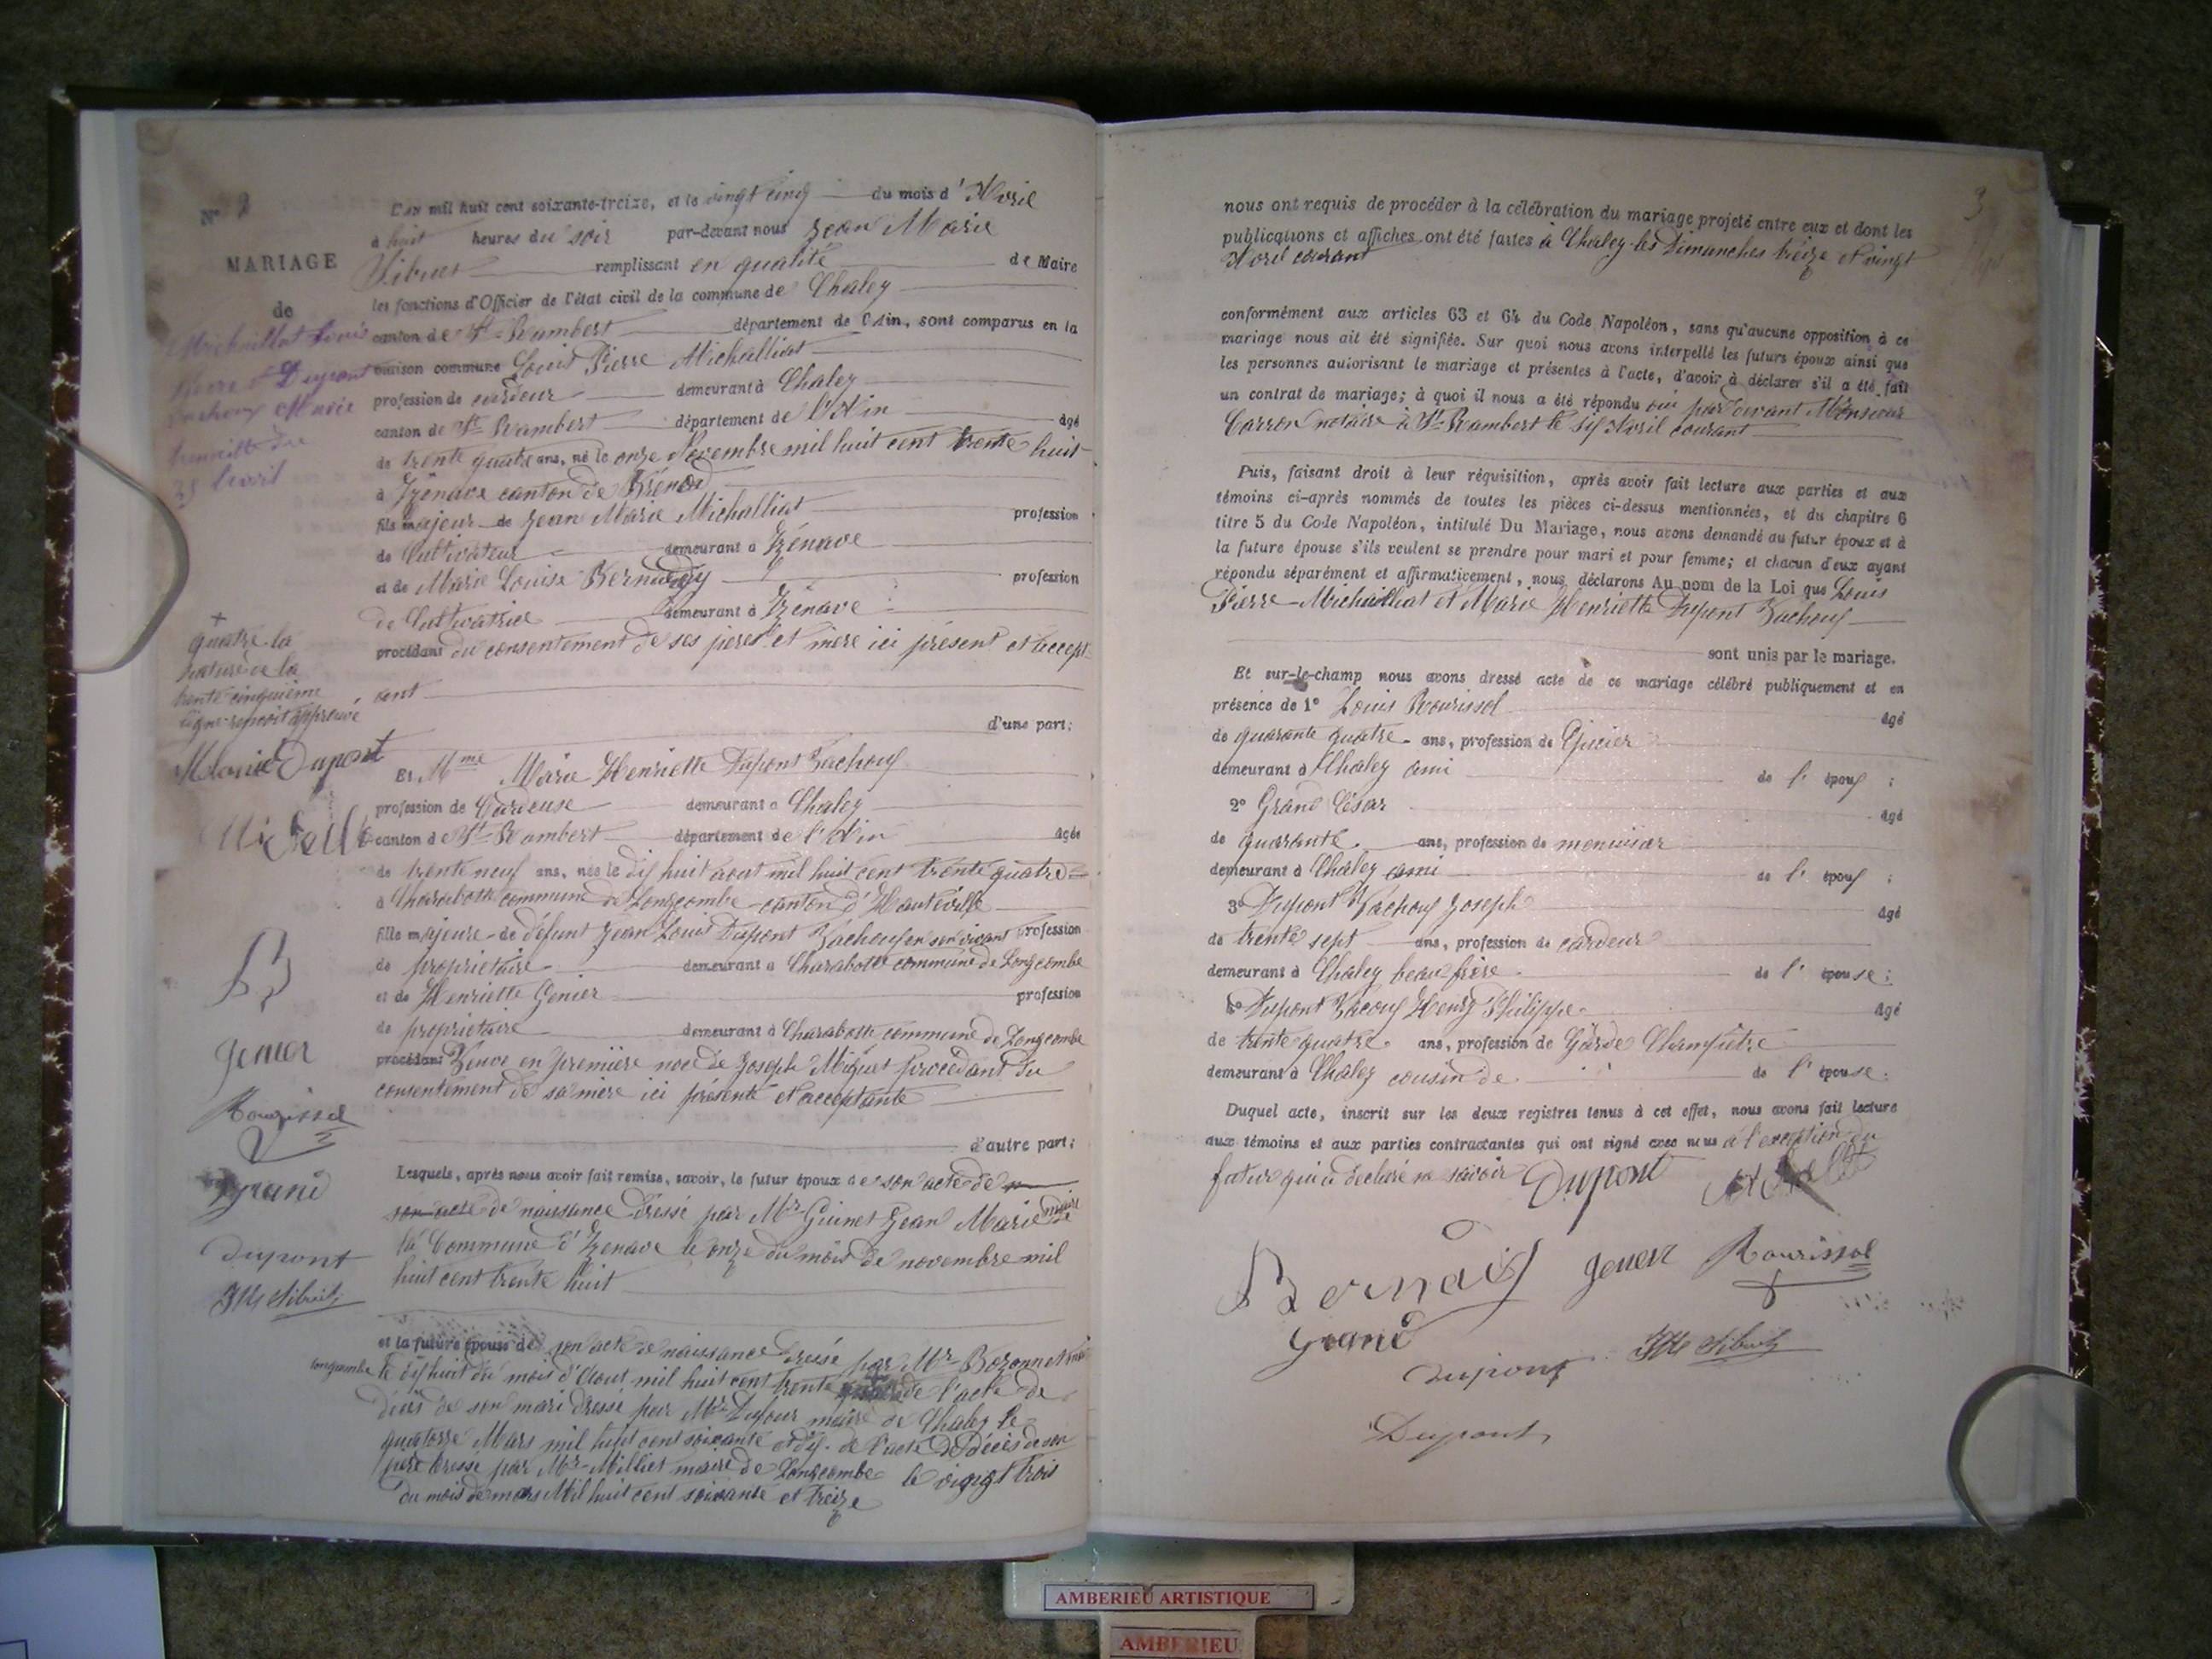 N° 2
MARIAGE
de
Michaillat Louis
Pierre et Dupont
Vachoux Marie
henriette du
25 avril
L'an mil huit cent soixante-treize, et le vingt cinq du mois d'Avril
à huit heures du soir par-devant nous Jean Marie
Sibuet remplissant en qualité de Maire
les fonctions d'Officier de l'état civil de la commune de Chaley
canton de St Rambert département de l'Ain, sont comparus en la
maison commune Louis Pierre Michalliat
profession de cardeur demeurant à Chaley
canton de St Rambert département de l'Ain âgé
de trente quatre ans, né le onze Novembre mil huit cent trente huit
à Izenave canton de Brénod
fils majeur de Jean Marie Michalliat profession
de Cultivateur demeurant à Izénave
et de Marie Louise profession
de Cultivatrice demeurant à Izénave
procédant du consentement de ses peres et mère ici présent et accept
ant
d'une part;
+
quatre. la
rature de la
trente cinquième
ligne approuvé
Marie Dupont
Et Mme Marie Henriette Dupont Vachoux
profession de Cardeuse demeurant à Chaley
canton de St Rambert département de l'Ain âgée
de trente neuf ans, née le dix huit aout mil huit cent trente quatre
à Charabotte commune de Longecombe canton d'Hauteville
fille majeure de défunt Jean Louis Dupont Vachoux en son vivant profession
de propriétaire demeurant à Charabotte commune de Longecombe
et de Henriette Genier profession
de propriétaire demeurant à Charabotte commune de Longecombe
procédant Veuve en première noce de Joseph Miguet procédant du
consentement de sa mère ici présente et acceptante
d'autre part;
B
Genier
Rourissol
grand
Dupont
JM Sibuet
Lesquels, après nous avoir fait remise, savoir, le futur époux de son acte de
son acte de naissance dressé par Mr Guinet Jean Marie maire de
la Commune d'Izenave le onze du mois de novembre mil
huit cent trente huit
et la future épouse de son acte de naissance dressé par Mr
longecombe le dix huit du mois d'Aout mil huit cent trente + de l'acte de
décès de son mari dressé par Mr Dufour maire de Chaley le
quatorze Mars mil huit cent soixante et dix. de l'acte de décès de son
père dressé par Mr Milliet maire de Longecombe le vingt trois
du mois de mars Mil huit cent soixante et treize
3
nous ont requis de procéder à la célébration du mariage projeté entre eux et dont les
publications et affiches ont été faites à Chaley les Dimanches treize et vingt
Avril courant
conformément aux articles 63 et 64 du Code Napoléon, sans qu'aucune opposition à ce
mariage nous ait été signifiée. Sur quoi nous avons interpellé les futurs époux ainsi que
les personnes autorisant le mariage et présentes à l'acte, d'avoir à déclarer s'il a été fait
un contrat de mariage; à quoi il nous a été répondu oui par devant Monsieur
Carron notaire à St Rambert le six Avril courant
Puis, faisant droit à leur réquisition, après avoir fait lecture aux parties et aux
témoins ci-après nommés de toutes les pièces ci-dessus mentionnées, et du chapitre 6
titre 5 du Code Napoléon, intitulé Du Mariage, nous avons demandé au futur époux et à
la future épouse s'ils veulent se prendre pour mari et pour femme; et chacun d'eux ayant
répondu séparément et affirmativement, nous déclarons Au nom de la Loi que Louis
Pierre Michalliat et Marie Henriette Dupont Vachoux
sont unis par le mariage.
Et sur-le-champ nous avons dressé acte de ce mariage célébré publiquement et en
présence de 1° Louis Rourissol âgé
de quarante quatre ans, profession de Epicier
demeurant à Chaley ami de l'époux;
2° Grand César âgé
de quarante ans, profession de menuisier
demeurant à Chaley ami de l'époux;
3° Dupont Vachoux Joseph âgé
de trente sept ans, profession de cardeur
demeurant à Chaley beau frère de l'épouse;
4° Dupont Vacoux Henry Philippe âgé
de trente quatre ans, profession de Garde Champêtre
demeurant à Chaley cousin de de l'épouse.
Duquel acte, inscrit sur les deux registres tenus à cet effet, nous avons fait lecture
aux témoins et aux parties contractantes qui ont signé avec nous à l'exception du
futur qui a déclaré ne savoir Dupont
Genier Rourissol
grand
Dupont JM Sibuet
Dupont
AMBERIEU ARTISTIQUE
AMBERIEU